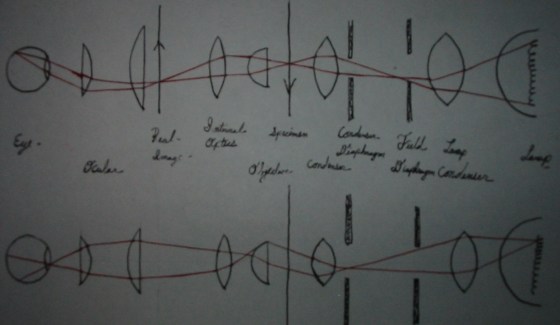 Eye.
Ocular
Real
Image.
Internal
Optics
Objective
Specimen
Condenser
Condenser
Diaphragm
Field
Diaphragm
Lamp
Condenser
Lamp